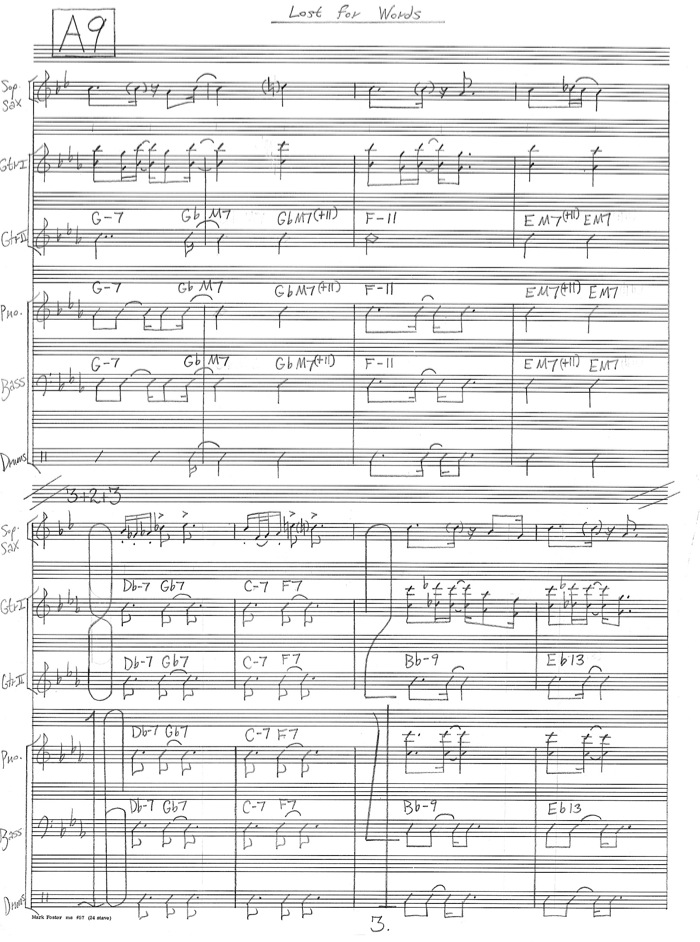 Lost for Words
A9
Sop. Sax
Gtr I
G-7 Gb M7 GbM7(+11) F-11 EM7(+11) EM7
Gtr II
G-7 Gb M7 GbM7(+11) F-11 EM7(+11) EM7
Pno.
G-7 Gb M7 GbM7(+11) F-11 EM7(+11) EM7
Bass
Drums
3+2+3
Sop. Sax
Db-7 Gb7 C-7 F7
Gtr I
Db-7 Gb7 C-7 F7 Bb-9 Eb13
Gtr II
Db-7 Gb7 C-7 F7
Pno.
Db-7 Gb7 C-7 F7 Bb-9 Eb13
Bass
Drums
Mark Foster ms #57 (24 stave)
3.